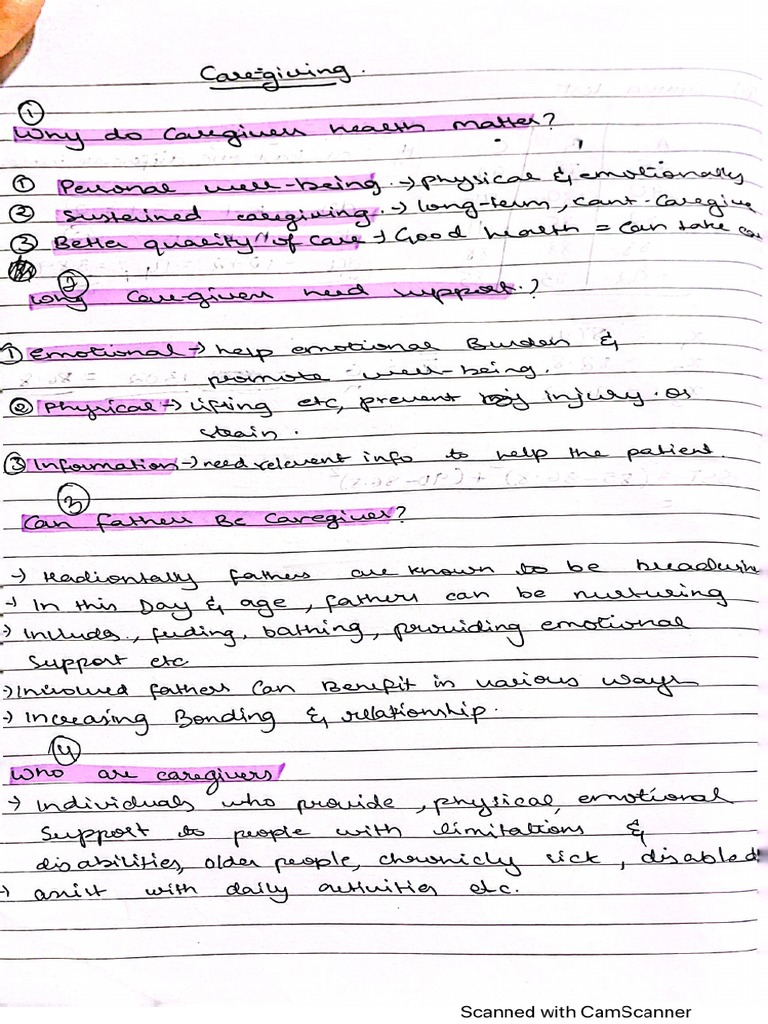 Care-giving.
①
Why do caregivers health matter?
① Personal well-being. → physical & emotionally
② Sustained caregiving. → long-term, cant. caregive
③ Better quality of care → Good health = Can take ca
②
Why Care-givers need support.?
① Emotional → help emotional Burden &
promote well-being.
② Physical → Lifting etc, prevent injury. or
strain.
③ Information → need relevent info to help the patient.
③
Can fathers Be Caregiver?
→ Hadiontally fathers are known to be breadwin
→ In this Day & age, fathers can be nurturing
→ Includes, feeding, bathing, providing emotional
Support etc
→ Involved fathers Can Benefit in various ways
→ Increasing Bonding & relationship.
④
Who are caregivers
→ Individuals who provide, physical, emotional
support to people with limitations &
disabilities, older people, chronicly sick, disabled
→ assist with daily activities etc.
Scanned with CamScanner